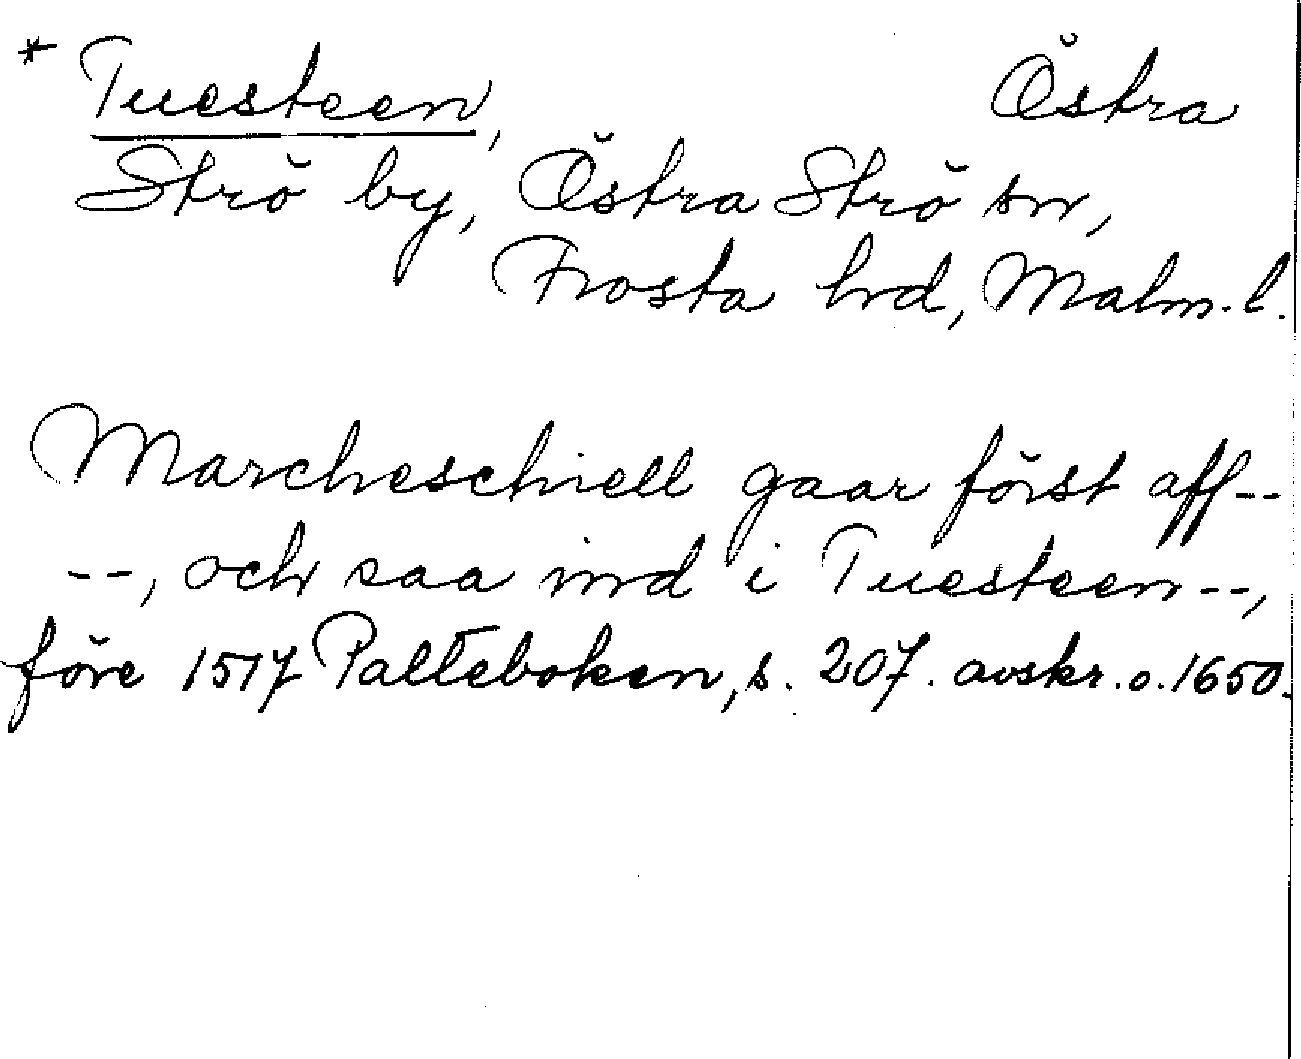 * Tuesteen, Östra
Strö by, Östra Strö sn,
Frosta hrd, Malm. l.
Marcheschiell gaar först aff--
--, och saa ind i Tuesteen--,
före 1517 Palteboken, s. 207. avskr. o. 1650.